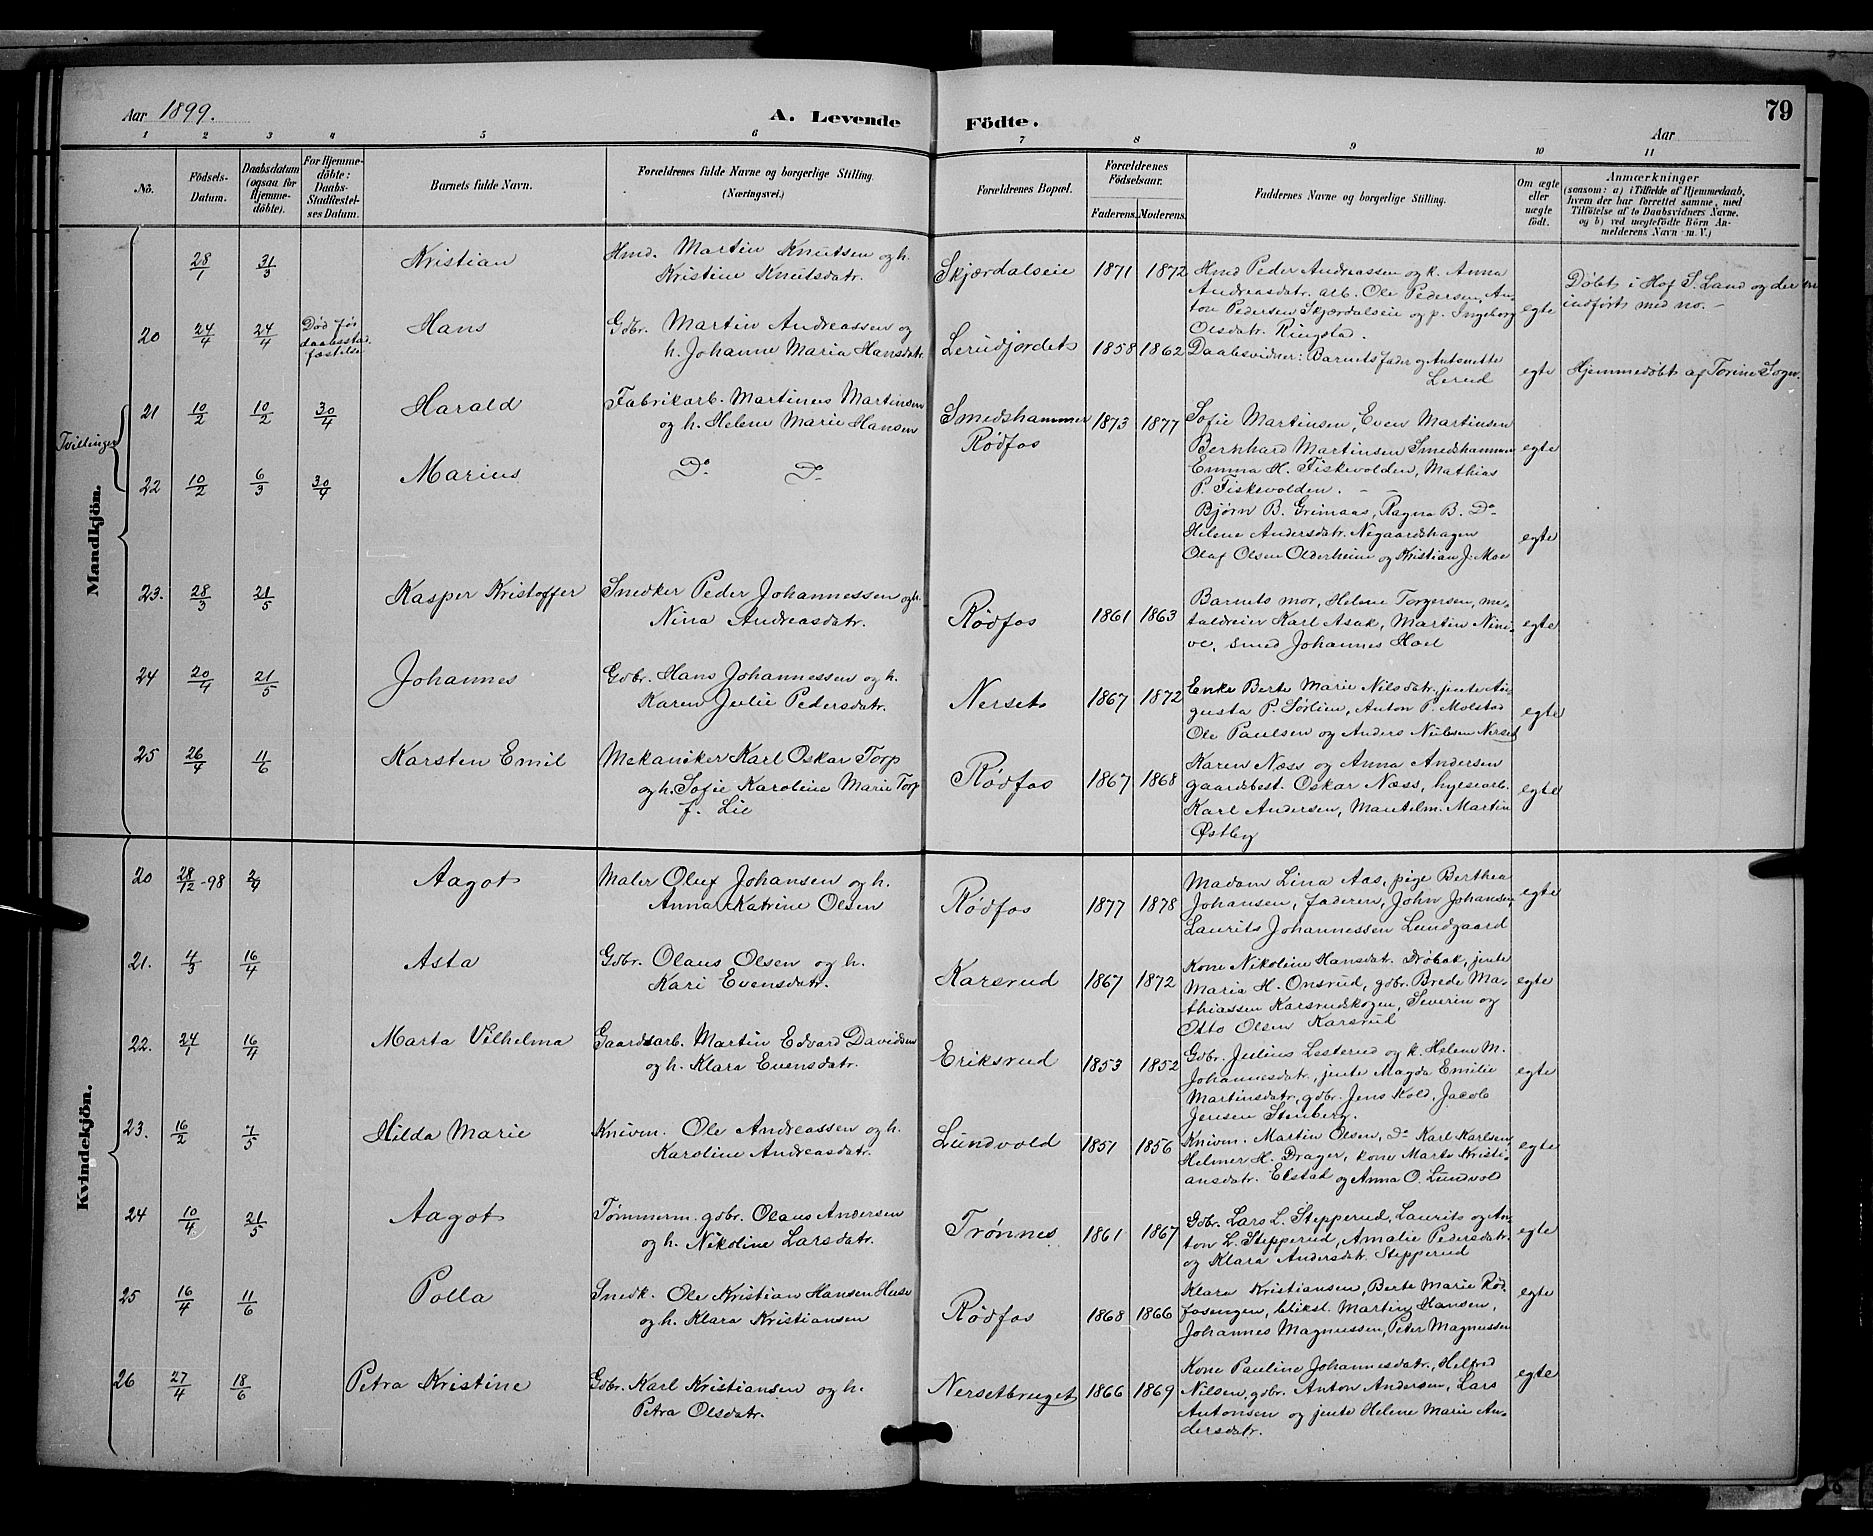 79
Aar 1899.
A. Levende Födte.
Aar
1 2 3 4 5 6 7 8 9 10 11
No.
Födsels-Datum.
Daabsdatum (ogsaa for Hjemme-döbte).
For Hjemme-döbte: Daabs-Stadfæstel-ses Datum.
Barnets fulde Navn.
Forældrenes fulde Navne og borgerlige Stilling.
(Næringsvei.)
Forældrenes Bopæl.
Forældrenes Födselsaar.
Faderens. Moderens.
Faddernes Navne og borgerlige Stilling.
Om ægte eller uægte födt.
Anmærkninger
(saasom: a) i Tilfælde af Hjemmedaab,
hvem der har forrettet samme, med
Tilföielse af to Daabsvidners Navne.
og b) ved uægtefödte Börn An-
melderens Navn m. V.)
Mandkjön.
28/1 31/3 Kristian
Hmd. Martin Knutsen og h.
Kristine Knutsdatr.
Skjærdalseie 1871 1872
Hmd Peder Andreassen og k. Anna
Andreasdatr. arb. Ole Pedersen, An-
ton Pedersen Skjærdalseie og p. Ingeborg
Olsdatr. Ringsta.
egte
Døbt i Hof S. Land og der
indført med no. -
20 24/4 24/4 Død før
daabsstad
fæstelse
Hans
Gdbr. Martin Andreassen og
h. Johanne Maria Hansdatr.
Lerudjordet 1858 1862
Daabsvidner: Barnets fader og Antonette
Lerud
egte
Hjemmedøbt af Torine Sogn.
Tvillinger
21 10/2 10/2 30/4 Harald
Fabrikarb. Martinus Martinsen
og h. Helene Marie Hansen
Smedshammer
Rødfos
1873 1877
Sofie Martinsen, Even Martinsen
Bernhard Martinsen Smedshammer
Emma H. Fiskevolden, Mathias
P. Fiskevolden. - -
egte
22 10/2 6/3 30/4 Marius
Do Do
Bjørn B. Grimaas, Ragna B. Do
Helene Andersdatr. Negaardshagen
Olaf Olsen Olderheim og Kristian J. Moe
egte
23. 28/3 21/5 Kasper Kristoffer
Snedker Peder Johannessen og h.
Nina Andreasdatr.
Rødfos 1861 1863
Barnets mor, Helene Torgersen, me-
taldreier Karl Asak, Martin Nini-
ve, smed Johannes Hoel
egte
24 20/4 21/5 Johannes
Gdbr. Hans Johannessen og h.
Karen Julie Pedersdatr.
Nerset 1867 1872
Enke Berte Marie Nilsdatr. jente Au-
gusta P. Sørlien, Anton P. Molstad
Ole Paulsen og Anders Nilsen Nerset
egte
25 26/4 11/6 Karsten Emil
Mekaniker Karl Oskar Torp
og h. Sofie Karoline Marie Torp
f. Lie
Rødfos 1867 1868
Karen Næss og Anna Andersen
gaardsbest. Oskar Næss, hylsearb.
Karl Andersen, Martin
Østby
egte
Kvindekjön.
20 28/12-98 2/4 Aagot
Maler Oluf Johansen og h.
Anna Katrine Olsen
Rødfos 1877 1878
Madam Lina Aas, pige Berthea
Johansen, faderen, John Johansen,
Laurits Johannessen Lundgaard
egte
21. 4/3 16/4 Asta
Gdbr. Olaus Olsen og h.
Kari Evensdatr.
Karsrud 1867 1872
Kone Nikoline Hansdatr. Drøbak, jente
Maria H. Onsrud, gdbr. Brede Ma-
thiassen Karsrudskogen, Severin og
Otto Olsen Karsrud
egte
22. 24/1 16/4 Marta Vilhelma
Gaardsarb. Martin Edvard Davidsen
og h. Klara Evensdatr.
Eriksrud 1853 1852
Gdbr. Julius Lesterud og k. Helene M.
Johannesdatr., jente Magda Emilie
Martinsdatr, gdbr. Jens Kold, Jacob
Jensen Stenberg.
egte
23. 16/2 7/5 Hilda Marie
Knivm. Ole Andreassen og h.
Karoline Andreasdatr.
Lundvold 1851 1856
Knivm. Martin Olsen, do Karl Karlsen,
Helmer H. Drager, kone Marte Kristi-
ansdatr. Elstad og Anna O. Lundvold
egte
24 10/4 21/5 Aagot
Tømmerm. gdbr. Olaus Andersen
og h. Nikoline Larsdatr.
Trønnes 1861 1867
Gdbr. Lars L. Stepperud, Laurits og An-
ton L. Stepperud, Amalie Pedersdatr.
og Klara Andersdatr. Stepperud
egte
25 16/4 11/6 Polla
Snedk. Ole Kristian Hansen Huse
og h. Klara Kristiansen
Rødfos 1868 1866
Klara Kristiansen, Berte Marie Rød-
fosengen, bliksl. Martin Hansen,
Johannes Magnussen, Peter Magnussen
egte
26 27/4 18/6 Petra Kristine
Gdbr. Karl Kristiansen og h.
Petra Olsdatr.
Nersetbruget 1866 1869
Kone Pauline Johannesdatr., Helfred
Nilsen, gdbr. Anton Andersen, Lars
Antonsen og jente Helene Marie An-
dersdatr.
egte